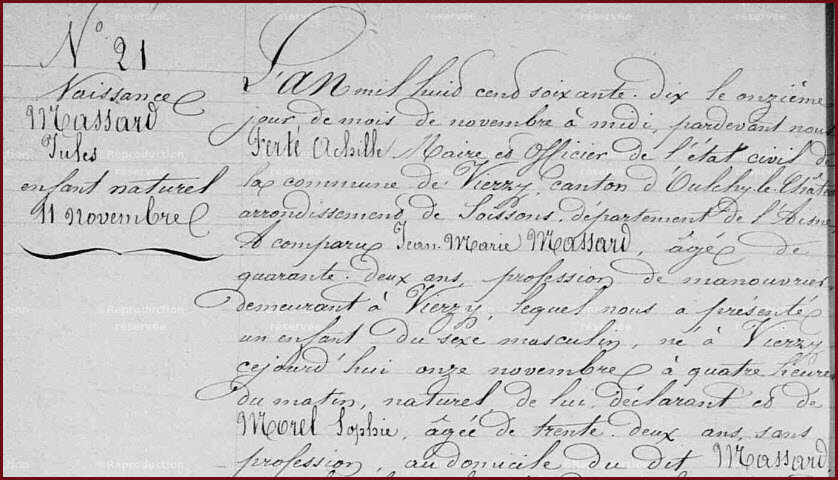 N° 21
Naissance
Massard
Jules
enfant naturel
11 novembre
L'an mil huit cent soixante-dix le onzième
jour de mois de novembre à midi, pardevant nous
Ferté Achille Maire et Officier de l'état civil de
la commune de Vierzy, canton d'Oulchy-le-Château
arrondissement de Soissons, département de l'Aisne
A comparu Jean-Marie Massard, âgé de
quarante-deux ans, profession de manouvrier
demeurant à Vierzy, lequel nous a présenté
un enfant du sexe masculin, né à Vierzy
cejourd'hui onze novembre à quatre heures
du matin, naturel de lui déclarant et de
Morel Sophie, âgée de trente-deux ans, sans
profession, au domicile du dit Massard